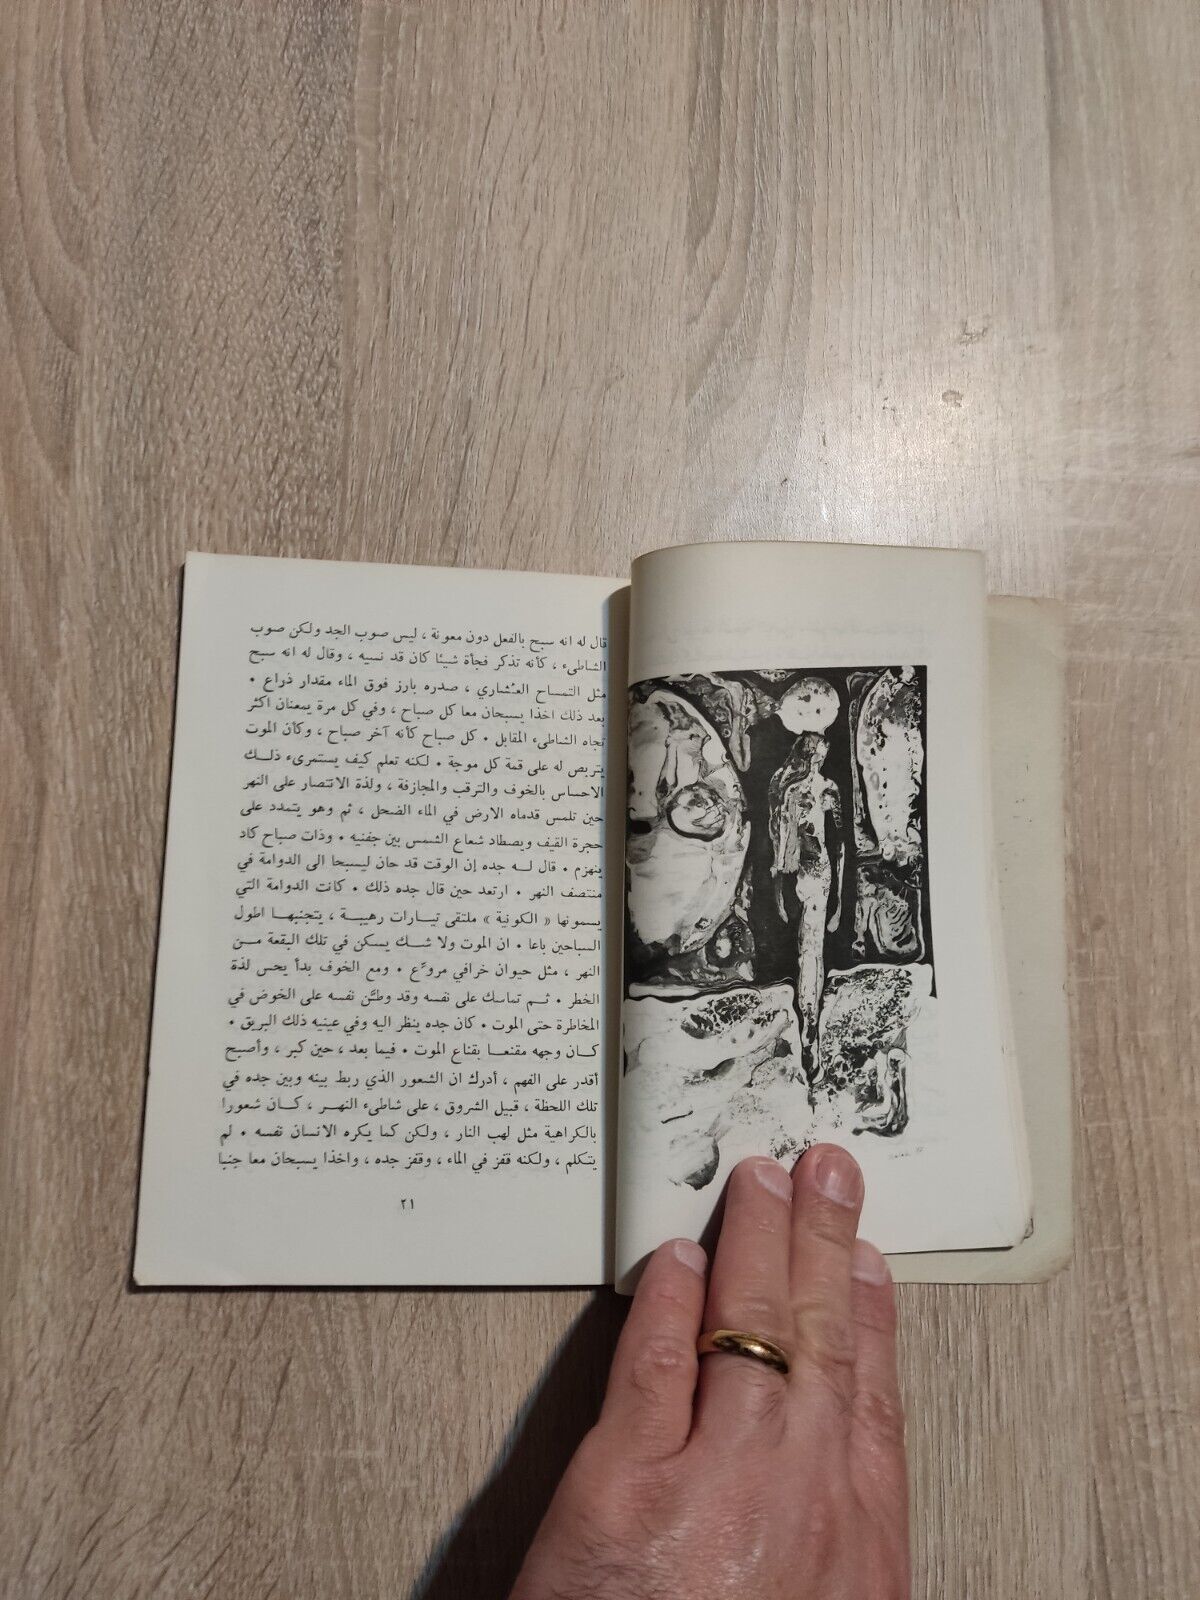 قال له انه سبح بالفعل دون معونة ، ليس صوب الجد ولكن صوب
الشاطىء ، كأنه تذكر فجأة شيئا كان قد نسيه ، وقال له انه سبح
مثل التمساح العشاري ، صدره بارز فوق الماء مقدار ذراع •
بعد ذلك اخذا يسبحان معا كل صباح ، وفي كل مرة يمعنان اكثر
تجاه الشاطىء المقابل • كل صباح كأنه آخر صباح ، وكأن الموت
يتربص له على قمة كل موجة • لكنه تعلم كيف يستمرىء ذلك
الاحساس بالخوف والترقب والمجازفة ، ولذة الانتصار على النهر
حين تلمس قدماه الارض في الماء الضحل ، ثم وهو يتمدد على
حجرة القيف ويصطاد شعاع الشمس بين جفنيه • وذات صباح كاد
ينهزم • قال له جده إن الوقت قد حان ليسبحا الى الدوامة في
منتصف النهر • ارتعد حين قال جده ذلك • كانت الدوامة التي
يسمونها « الكونية » ملتقى تيارات رهيبة ، يتجنبها اطول
السباحين باعا • ان الموت ولا شك يسكن في تلك البقعة من
النهر ، مثل حيوان خرافي مروّع • ومع الخوف بدأ يحس لذة
الخطر • ثم تماسك على نفسه وقد وطّن نفسه على الخوض في
المخاطرة حتى الموت • كان جده ينظر اليه وفي عينيه ذلك البريق •
كان وجهه مقنعا بقناع الموت • فيما بعد ، حين كبر ، وأصبح
أقدر على الفهم ، أدرك ان الشعور الذي ربط بينه وبين جده في
تلك اللحظة ، قبيل الشروق ، على شاطىء النهر ، كان شعورا
بالكراهية مثل لهب النار ، ولكن كما يكره الانسان نفسه • لم
يتكلم ، ولكنه قفز في الماء ، وقفز جده ، واخذا يسبحان معا جنبا
٢١